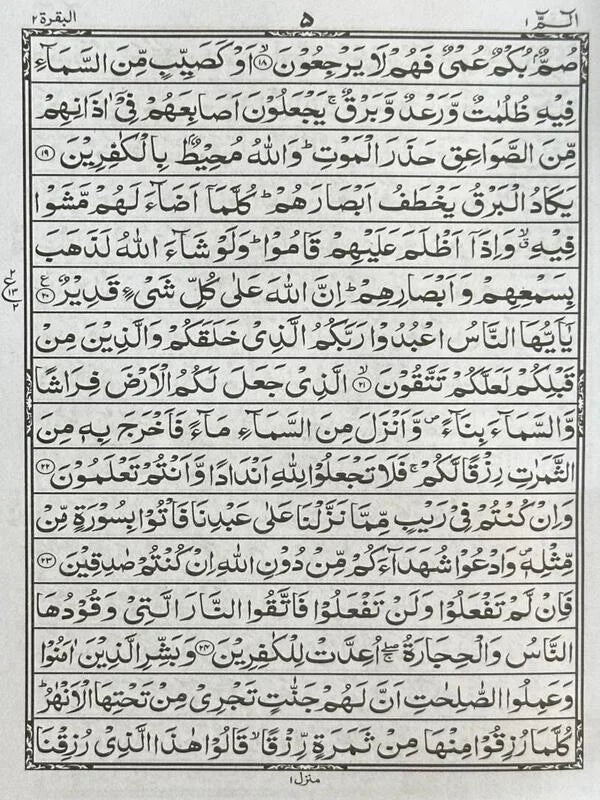 الٓـمّٓ ١
٥
البقرة ٢
صُمٌّۢ بُكْمٌ عُمْىٌ فَهُمْ لَا يَرْجِعُوْنَ ۙ﴿۱۸﴾ اَوْ كَصَيِّبٍ مِّنَ السَّمَآءِ
فِيْهِ ظُلُمٰتٌ وَّرَعْدٌ وَّبَرْقٌ ۚ يَجْعَلُوْنَ اَصَابِعَهُمْ فِىْۤ اٰذَانِهِمْ
مِّنَ الصَّوَاعِقِ حَذَرَ الْمَوْتِ ؕ وَاللّٰهُ مُحِيْطٌۢ بِالْكٰفِرِيْنَ ﴿۱۹﴾
يَكَادُ الْبَرْقُ يَخْطَفُ اَبْصَارَهُمْ ؕ كُلَّمَاۤ اَضَآءَ لَهُمْ مَّشَوْا
فِيْهِ ۙۗ وَاِذَاۤ اَظْلَمَ عَلَيْهِمْ قَامُوْا ؕ وَلَوْ شَآءَ اللّٰهُ لَذَهَبَ
بِسَمْعِهِمْ وَاَبْصَارِهِمْ ؕ اِنَّ اللّٰهَ عَلٰى كُلِّ شَىْءٍ قَدِيْرٌ ﴿۲۰﴾
يٰۤاَيُّهَا النَّاسُ اعْبُدُوْا رَبَّكُمُ الَّذِىْ خَلَقَكُمْ وَالَّذِيْنَ مِنْ
قَبْلِكُمْ لَعَلَّكُمْ تَتَّقُوْنَ ۙ﴿۲۱﴾ الَّذِىْ جَعَلَ لَكُمُ الْاَرْضَ فِرَاشًا
وَّالسَّمَآءَ بِنَآءً ۪ وَّاَنْزَلَ مِنَ السَّمَآءِ مَآءً فَاَخْرَجَ بِهٖ مِنَ
الثَّمَرٰتِ رِزْقًا لَّكُمْ ۚ فَلَا تَجْعَلُوْا لِلّٰهِ اَنْدَادًا وَّاَنْتُمْ تَعْلَمُوْنَ ﴿۲۲﴾
وَاِنْ كُنْتُمْ فِىْ رَيْبٍ مِّمَّا نَزَّلْنَا عَلٰى عَبْدِنَا فَاْتُوْا بِسُوْرَةٍ مِّنْ
مِّثْلِهٖ ۪ وَادْعُوْا شُهَدَآءَكُمْ مِّنْ دُوْنِ اللّٰهِ اِنْ كُنْتُمْ صٰدِقِيْنَ ﴿۲۳﴾
فَاِنْ لَّمْ تَفْعَلُوْا وَلَنْ تَفْعَلُوْا فَاتَّقُوا النَّارَ الَّتِىْ وَقُوْدُهَا
النَّاسُ وَالْحِجَارَةُ ۖۚ اُعِدَّتْ لِلْكٰفِرِيْنَ ﴿۲۴﴾ وَبَشِّرِ الَّذِيْنَ اٰمَنُوْا
وَعَمِلُوا الصّٰلِحٰتِ اَنَّ لَهُمْ جَنّٰتٍ تَجْرِىْ مِنْ تَحْتِهَا الْاَنْهٰرُ ؕ
كُلَّمَا رُزِقُوْا مِنْهَا مِنْ ثَمَرَةٍ رِّزْقًا ۙ قَالُوْا هٰذَا الَّذِىْ رُزِقْنَا
منزل ١
٢
ع
١٣
٢